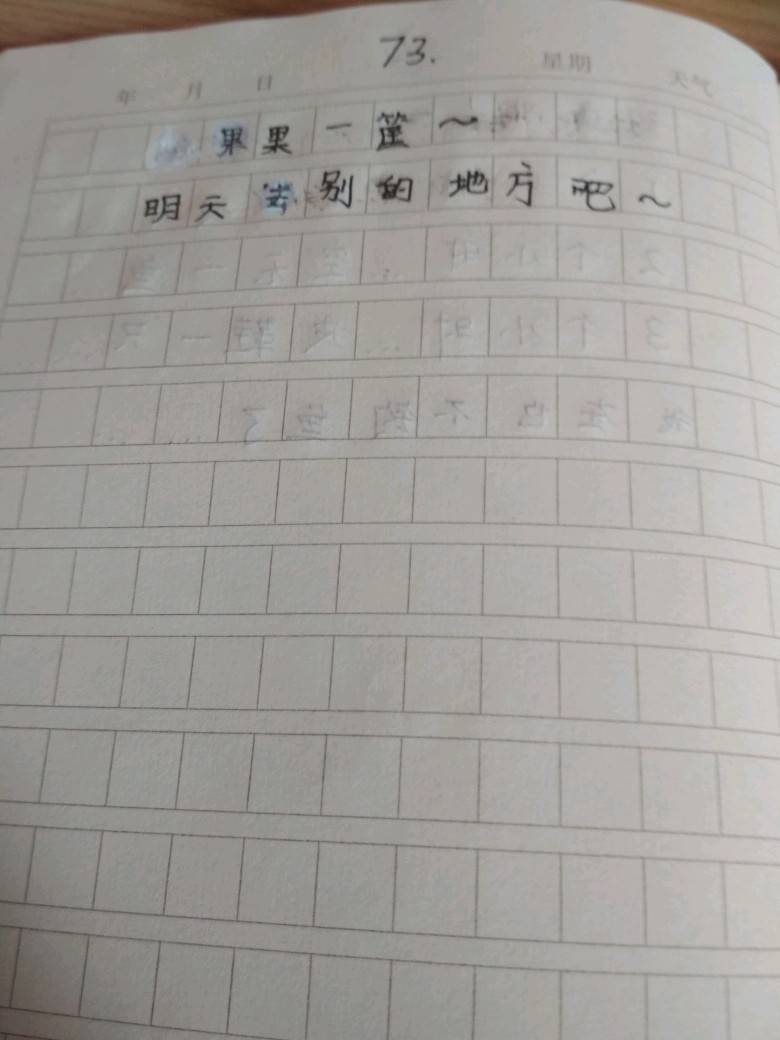 73.
年 月 日 星期 天气
果果一筐~
明天去别的地方吧~